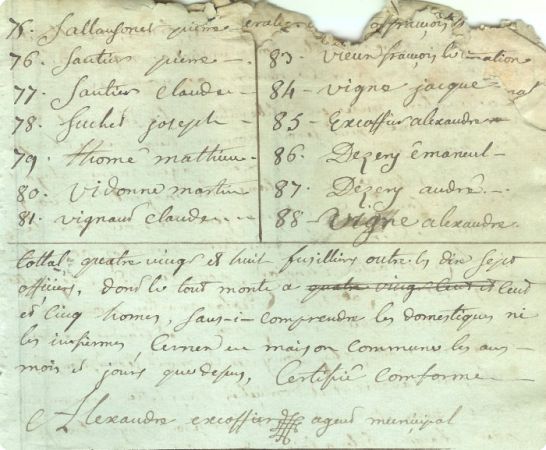 75. Sallansonet pierre
76. Sautier pierre
77. Sautier Claude
78. Suchet joseph
79. thomé mathieu
80. Vidonne martin
81. vignaud Claude
83. vieux françois
84. vigne jacque
85. Excoffier alexandre
86. Dezery émanuel
87. Dezery andré
88. vigne alexandre
tottal quatre vingt et huit fusilliers outre les dix sept
officiers, dont le tout monte a quatre vingt Cent et Cent
et Cinq homes, sans-i-comprendre les domestiques ni
les infirmes en maison Commune les ans
mois et jours que depus, Certiffié Conforme
Alexandre excoffier agend municipal